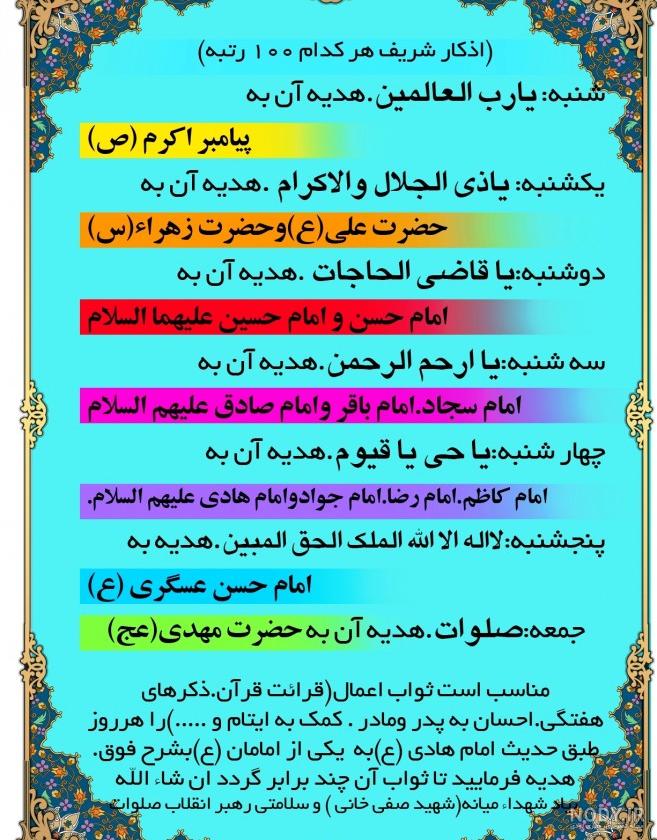 (اذکار شریف هر کدام ۱۰۰ رتبه)
شنبه: یارب العالمین.هدیه آن به
پیامبر اکرم (ص)
یکشنبه: یاذی الجلال والاکرام .هدیه آن به
حضرت علی(ع)وحضرت زهراء(س)
دوشنبه:یا قاضی الحاجات .هدیه آن به
امام حسن و امام حسین علیهما السلام
سه شنبه:یا ارحم الرحمن.هدیه آن به
امام سجاد.امام باقر وامام صادق علیهم السلام
چهار شنبه:یا حی یا قیوم.هدیه آن به
امام کاظم.امام رضا.امام جوادوامام هادی علیهم السلام.
پنجشنبه:لااله الا الله الملک الحق المبین.هدیه به
امام حسن عسگری (ع)
جمعه:صلوات.هدیه آن به حضرت مهدی(عج)
مناسب است ثواب اعمال(قرائت قرآن.ذکرهای
هفتگی.احسان به پدر ومادر . کمک به ایتام و .....)را هرروز
طبق حدیث امام هادی (ع)به یکی از امامان (ع)بشرح فوق.
هدیه فرمایید تا ثواب آن چند برابر گردد ان شاء الله
بیاد شهداء میانه(شهید صفی خانی ) و سلامتی رهبر انقلاب صلوات
NODY.IR